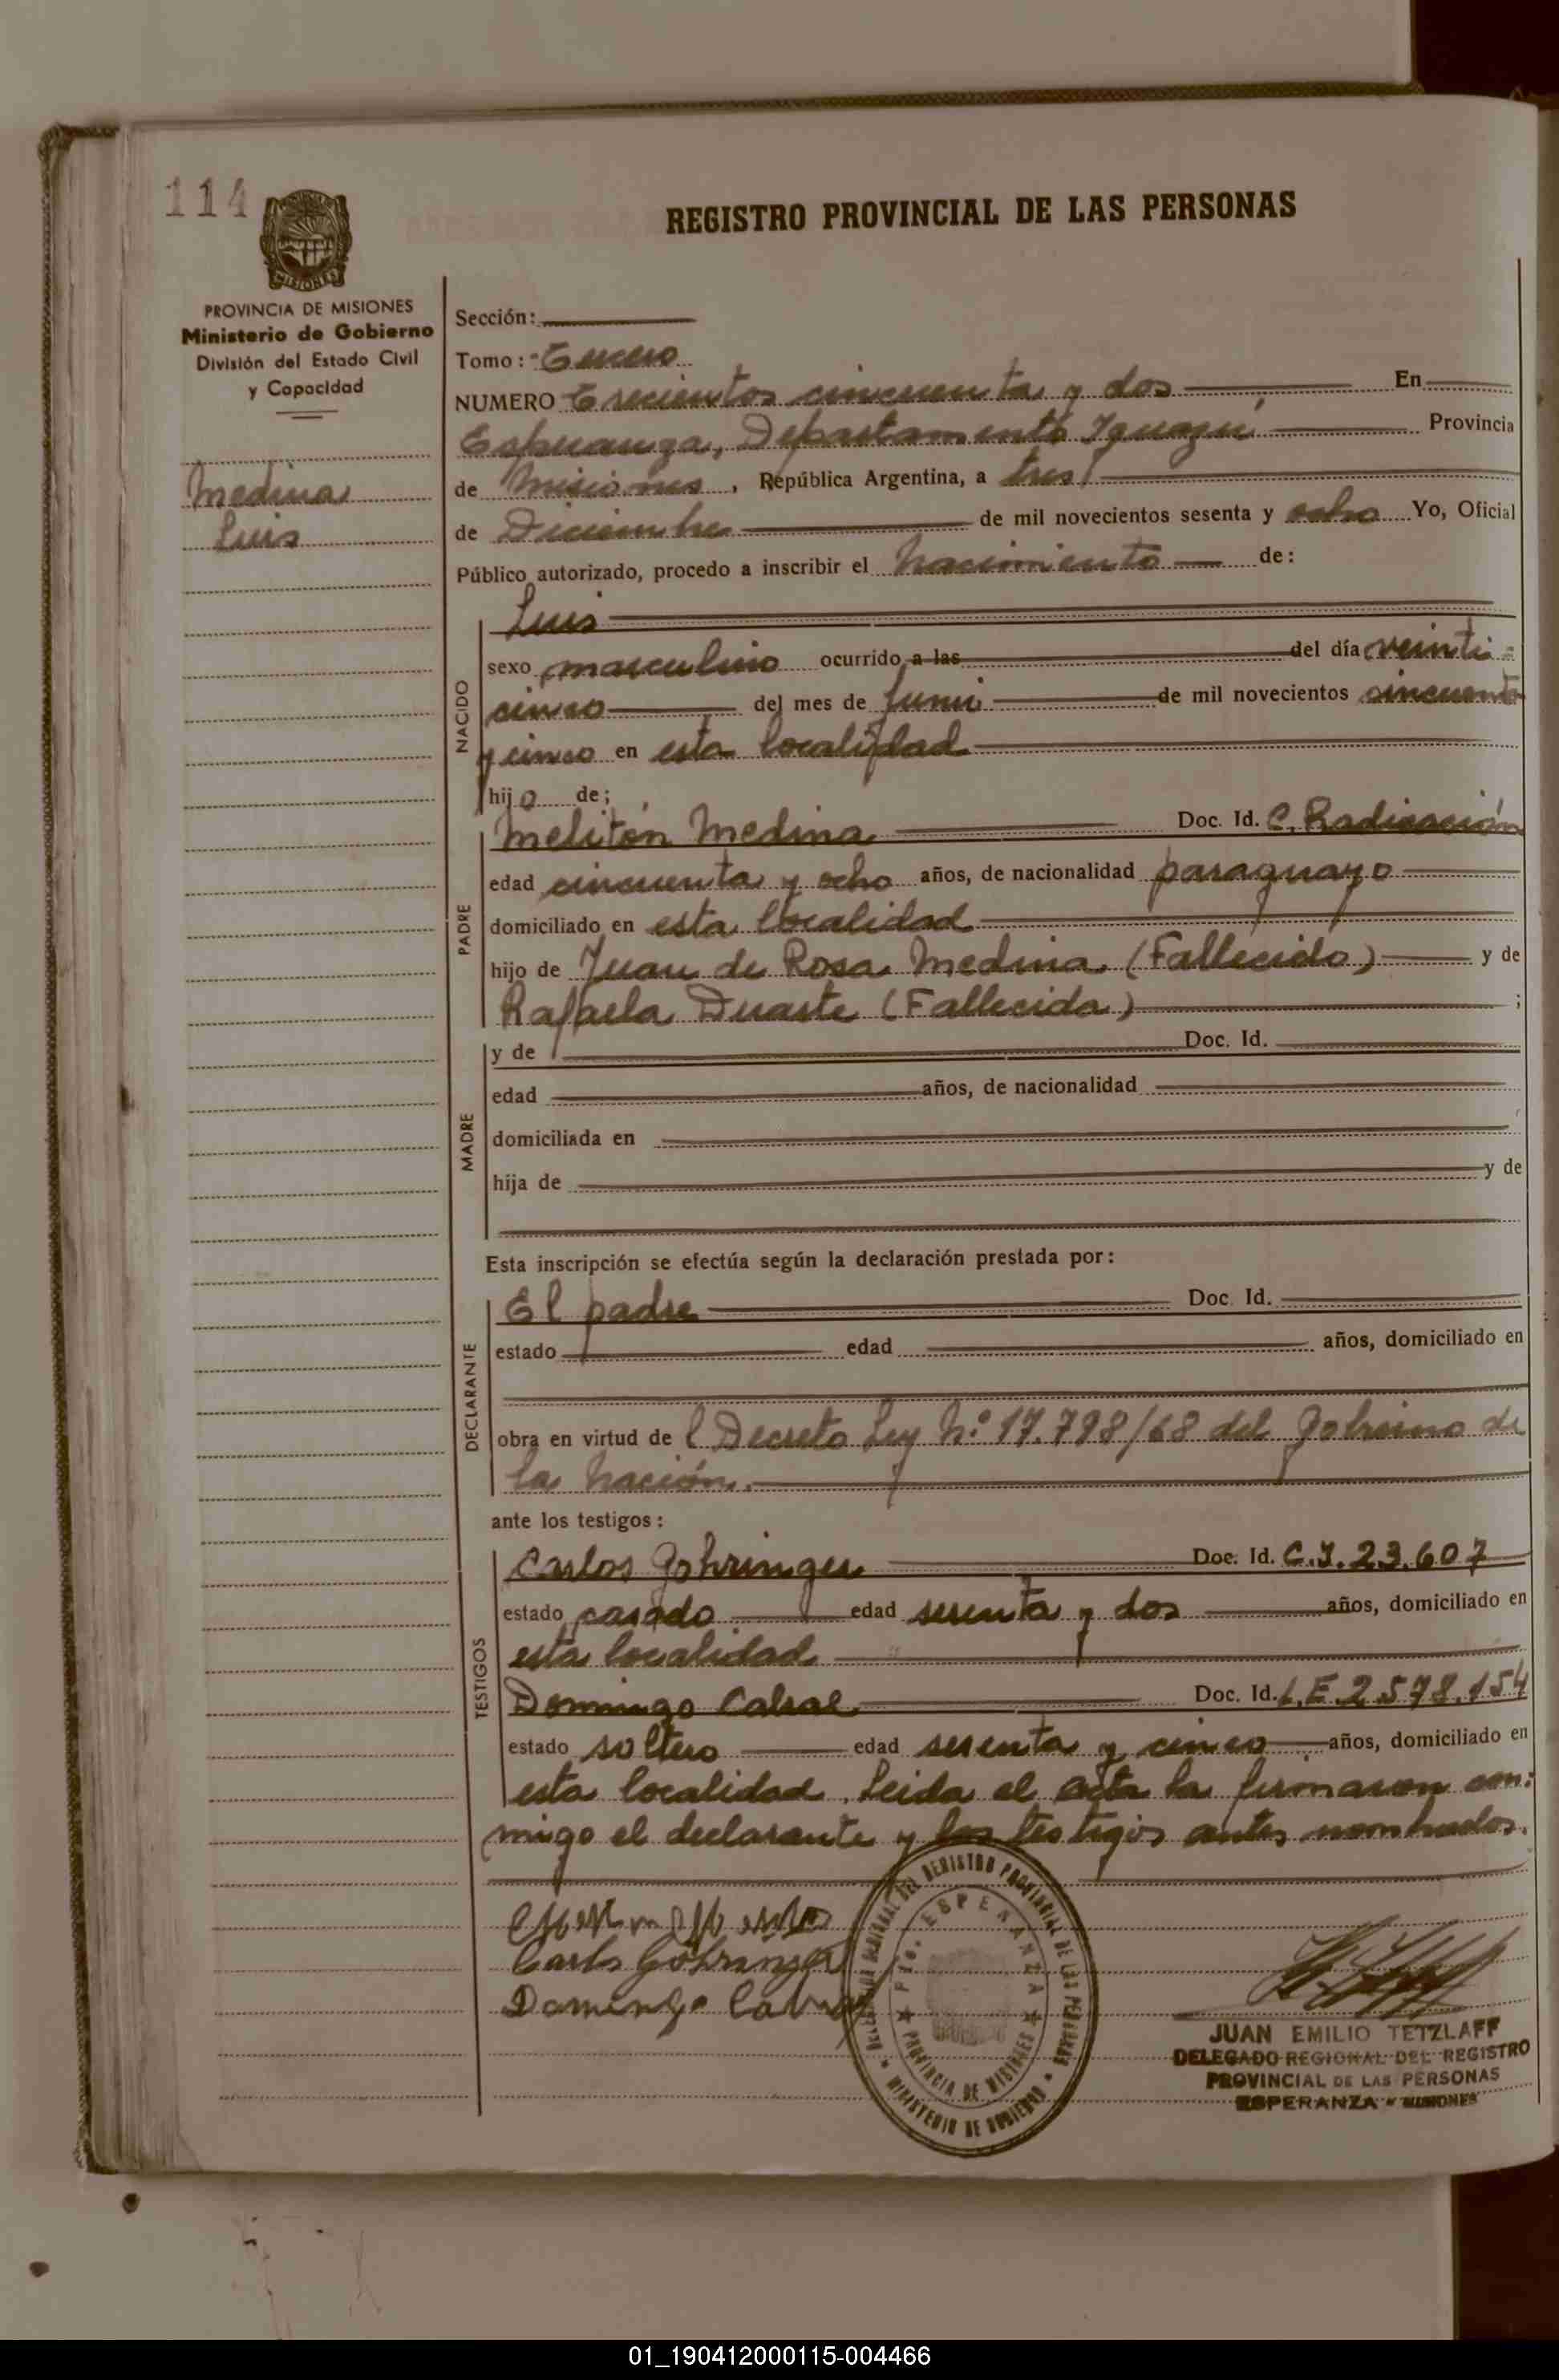 114
REGISTRO PROVINCIAL DE LAS PERSONAS
MISIONES
PROVINCIA DE MISIONES
Ministerio de Gobierno
División del Estado Civil
y Capacidad
Medina
Luis
Sección:
Tomo: Tercero
NUMERO Trecientos cincuenta y dos En
Esperanza, Departamento Iguazú Provincia
de Misiones, República Argentina, a tres
de Diciembre de mil novecientos sesenta y ocho Yo, Oficial
Público autorizado, procedo a inscribir el nacimiento de:
NACIDO
Luis
sexo masculino ocurrido a las del día veinti=
cinco del mes de de mil novecientos cincuenta
y cinco en esta localidad
hijo de;
PADRE
Melitón Medina Doc. Id. C. Radicación
edad cincuenta y ocho años, de nacionalidad paraguayo
domiciliado en esta localidad
hijo de Juan de Rosa Medina (Fallecido) y de
Rafaela Duarte (Fallecida) ;
MADRE
y de Doc. Id.
edad años, de nacionalidad
domiciliada en
hija de y de
Esta inscripción se efectúa según la declaración prestada por:
DECLARANTE
El padre Doc. Id.
estado edad años, domiciliado en
obra en virtud de l Decreto Ley N.° 17.798/68 del Gobierno de
la Nación.
ante los testigos:
TESTIGOS
Carlos Gohringer Doc. Id. C.I. 23.607
estado casado edad sesenta y dos años, domiciliado en
esta localidad
Domingo Cabral Doc. Id. L.E. 2.578.154
estado soltero edad sesenta y cinco años, domiciliado en
esta localidad. Leida el acta la firmaron con:
migo el declarante y los testigos antes nombrados.
Carlos Göhringer
Domingo Cabral
DEL REGISTRO PROVINCIAL DE LAS PERSONAS
MINISTERIO DE GOBIERNO
PTO. ESPERANZA
PROVINCIA DE MISIONES
JUAN EMILIO TETZLAFF
DELEGADO REGIONAL DEL REGISTRO
PROVINCIAL DE LAS PERSONAS
ESPERANZA - MISIONES
01_190412000115-004466